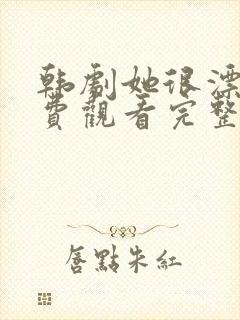 韩劇她很漂
費觀看完整
唇點朱紅